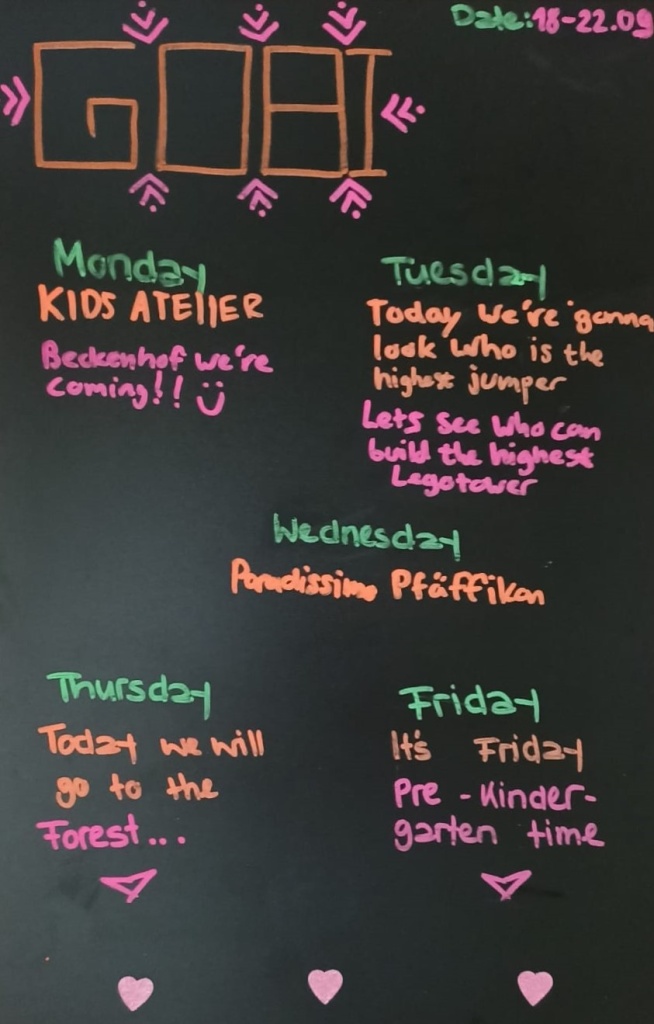 Date: 18-22.09
GOBI
Monday
KIDS ATELIER
Beckenhof we're
coming!! :)
Tuesday
Today we're gonna
look who is the
highest jumper
Lets see who can
build the highest
Legotower
Wednesday
Paradissimo Pfäffikon
Thursday
Today we will
go to the
Forest...
Friday
It's Friday
Pre-Kinder-
garten time